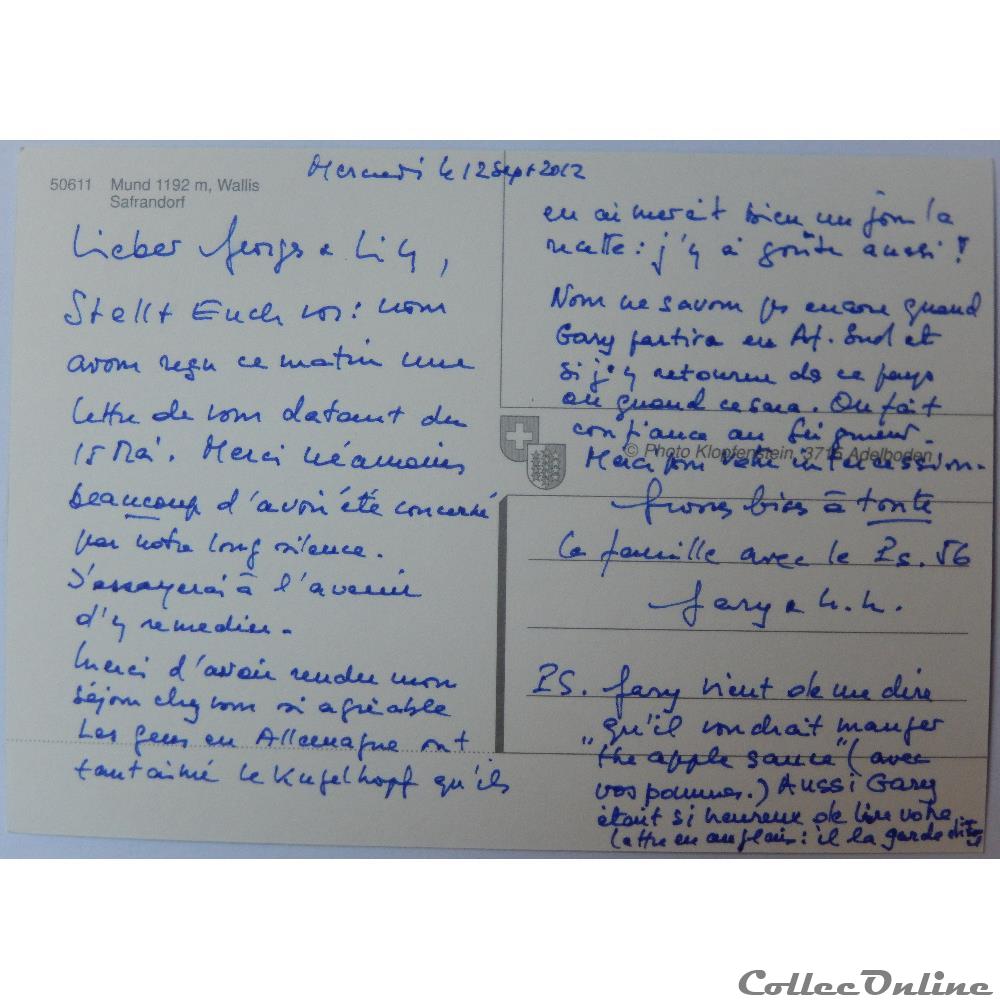 Mercredi le 12 Sept 2012
50611 Mund 1192 m, Wallis
Safrandorf
Lieber Georges & Lily,
Stellt Euch vor: nous
avons reçu ce matin une
lettre de vous datant du
15 Mai. Merci néamoins
beaucoup d'avoir été concerné
par notre long silence.
J'essayerai à l'avenir
d'y remedier.
Merci d'avoir rendu mon
séjour chez vous si agréable
Les gens en Allemagne ont
tant aimé le Kugelhopf qu'ils
en aimerait bien un jour la
recette: j'y ai goûté aussi!
Nous ne savons pas encore quand
Gary partira en Af. Sud et
si j'y retourne ds ce pays
ou quand ce sera. On fait
confiance au Seigneur.
© Photo Klopfenstein, 3715 Adelboden
Merci pour votre intercession.
Grosses bises à toute
la famille avec le Ps. 56
Gary &
PS. Gary vient de me dire
"qu'il voudrait manger
the apple sauce" (avec
vos pommes.) Aussi Gary
était si heureux de lire votre
lettre en anglais: il la garde
CollecOnline